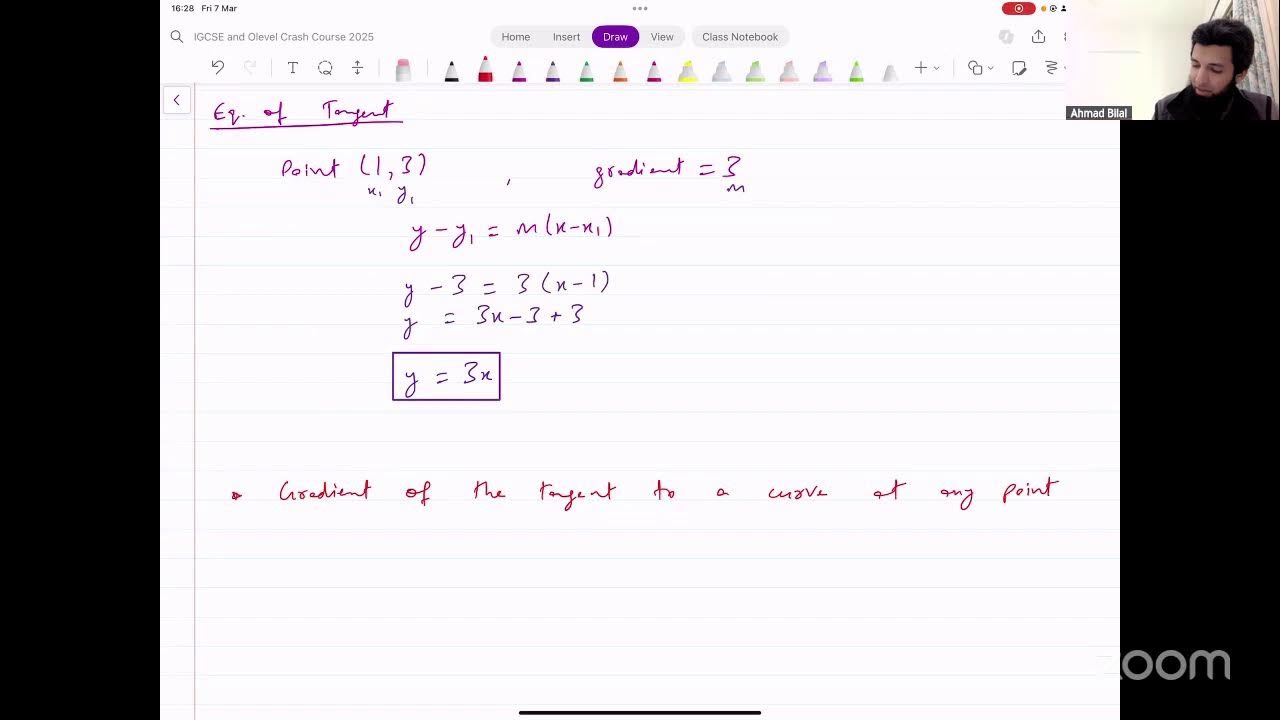 16:28 Fri 7 Mar
IGCSE and Olevel Crash Course 2025
Home Insert Draw View Class Notebook
Ahmad Bilal
Eq. of Tangent
Point (1, 3) , gradient = 3
x₁ y₁ m
y - y₁ = m(x-x₁)
y - 3 = 3(x-1)
y = 3x-3+3
y = 3x
• Gradient of the tangent to a curve at any point
zoom